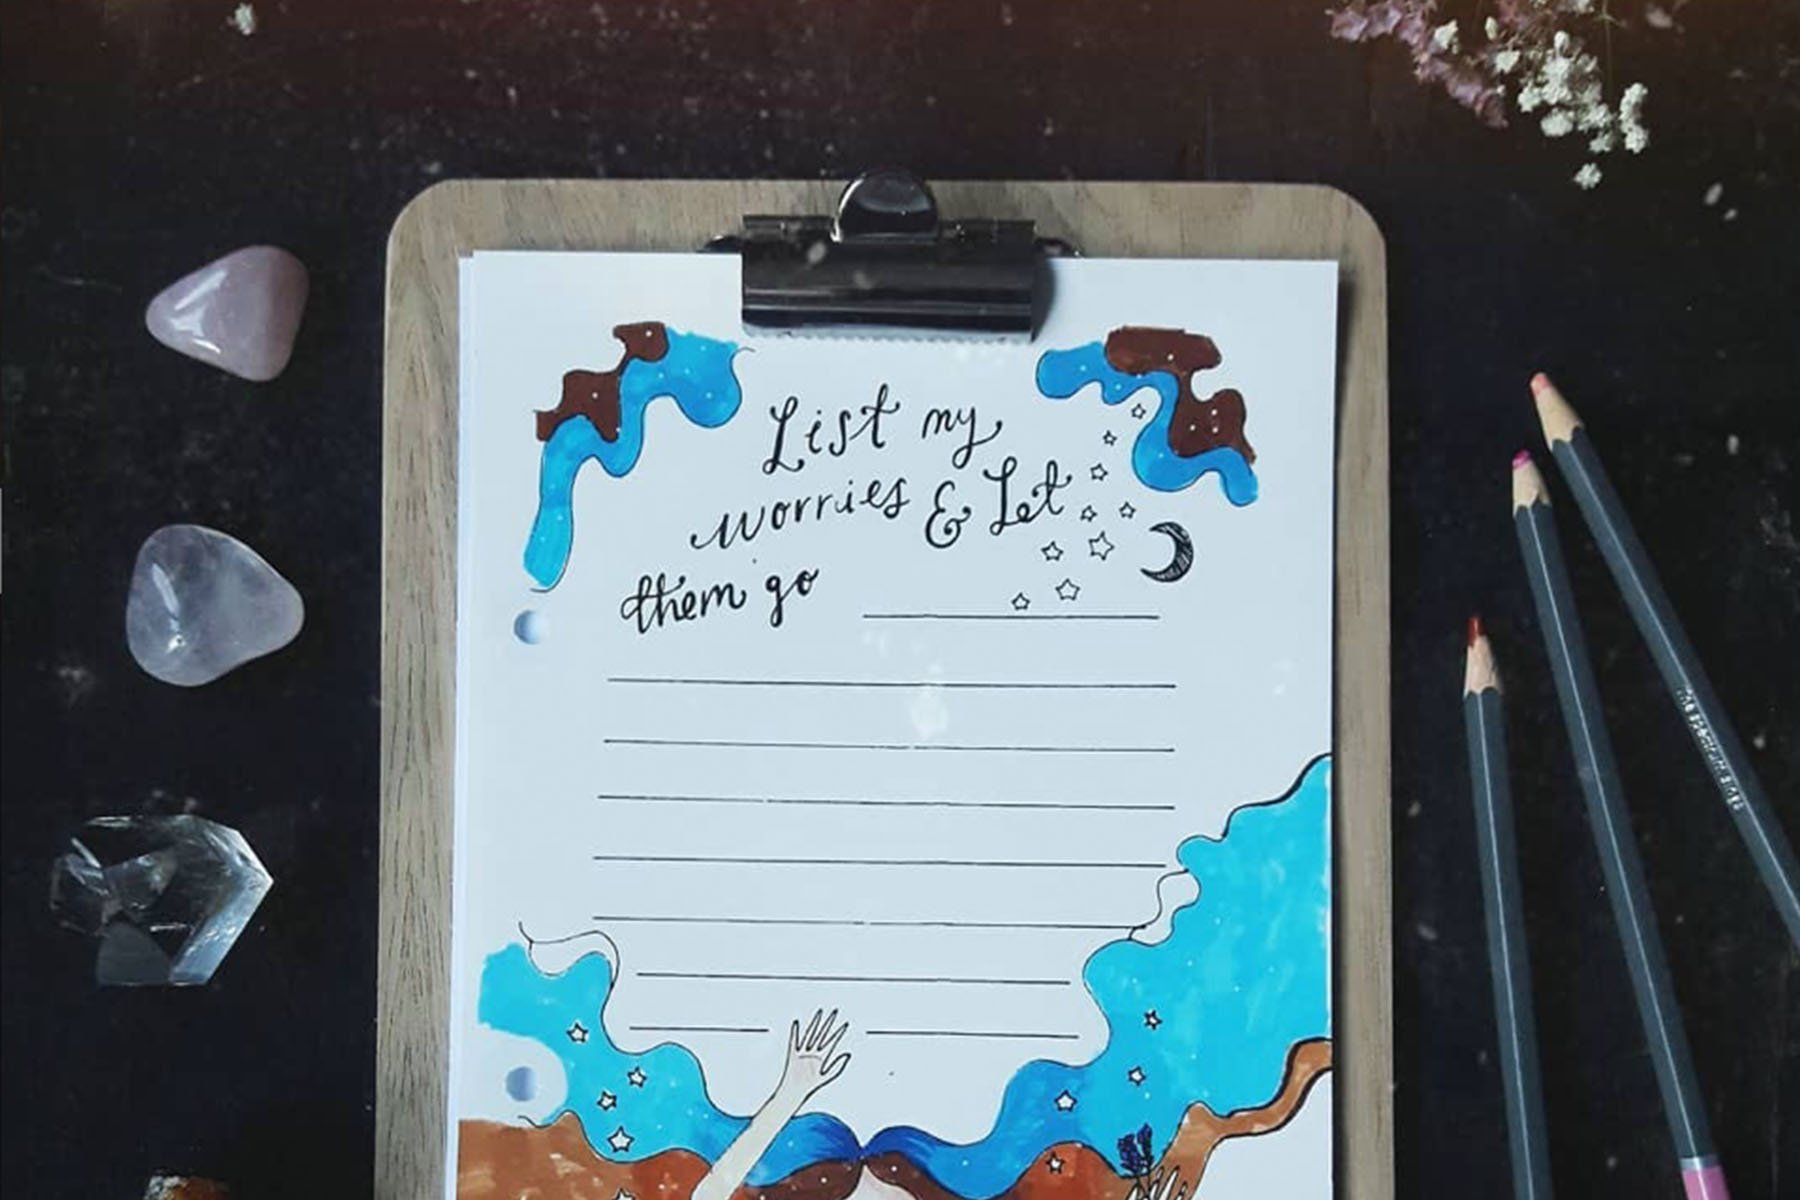 List my
worries & Let
them go